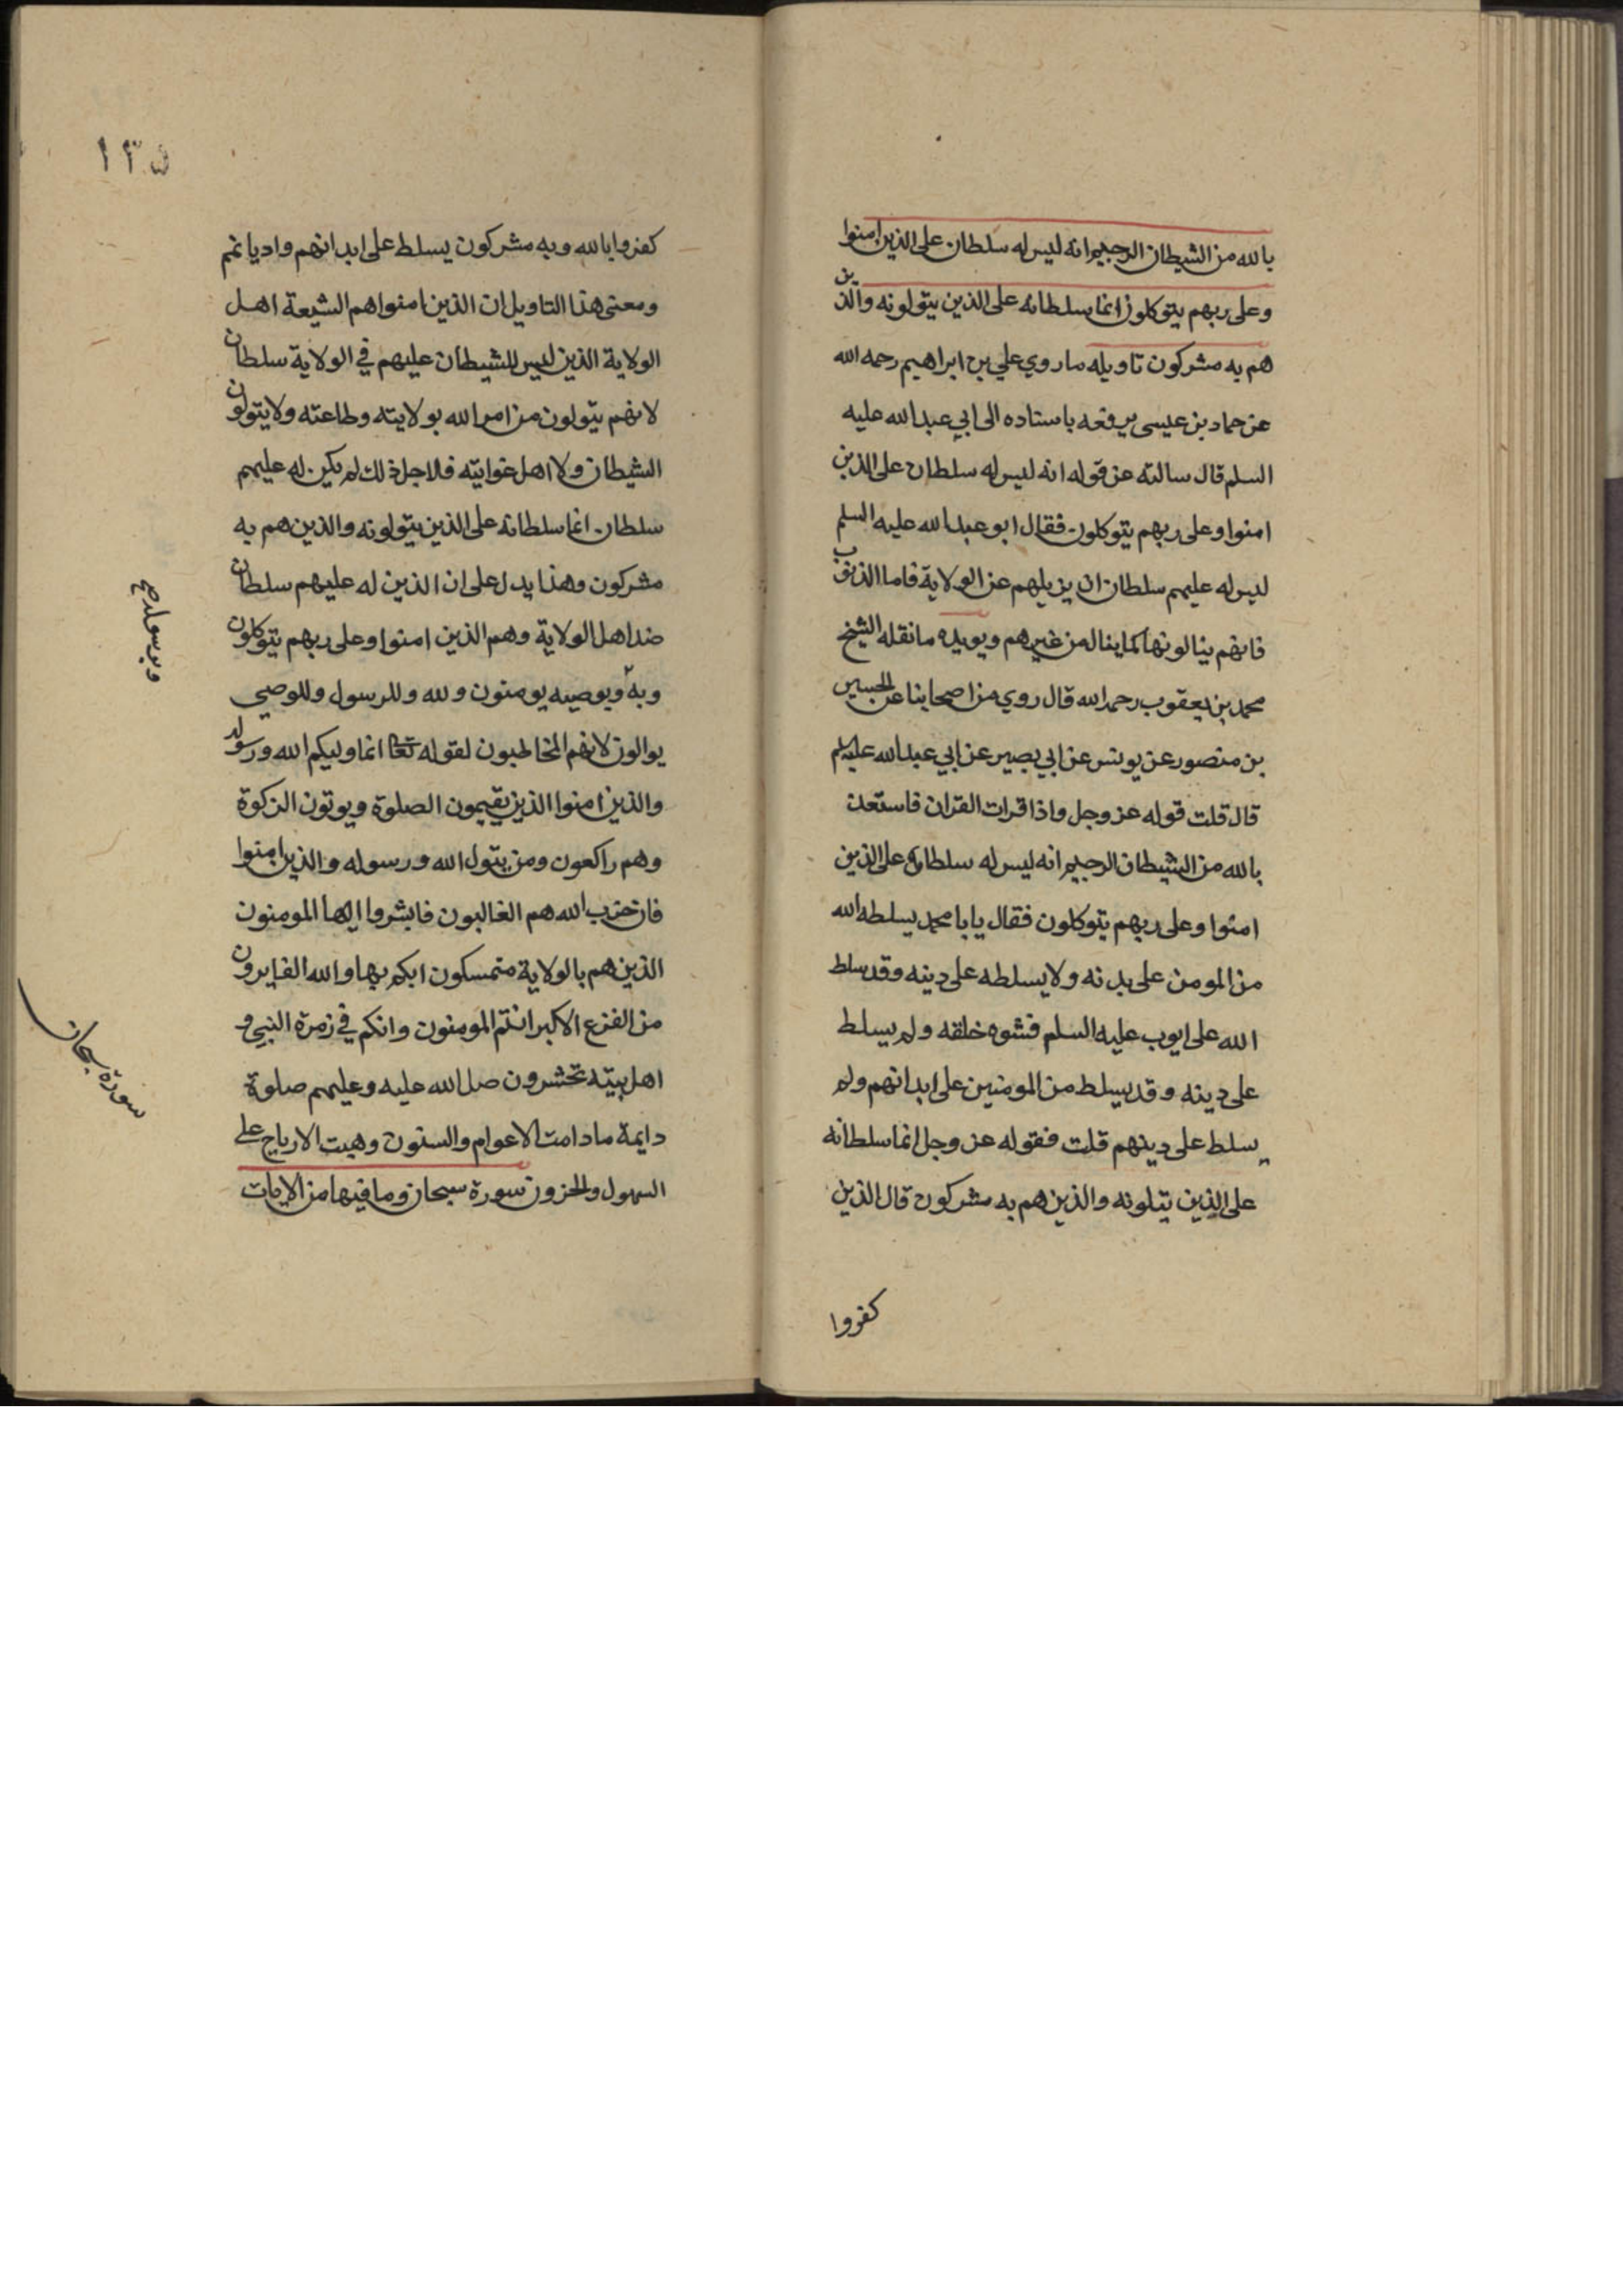 بالله من الشيطان الرجيم انه ليس له سلطان على الذين امنوا
وعلى ربهم يتوكلون انما سلطانه على الذين يتولونه والذين
هم به مشركون تاويله ما روي علي بن ابراهيم رحمه الله
عن حماد بن عيسى يرفعه باسناده الى ابي عبد الله عليه
السلم قال سالته عن قوله انه ليس له سلطان على الذين
امنوا وعلى ربهم يتوكلون فقال ابو عبد الله عليه السلم
ليس له عليهم سلطان ان يزيلهم عن الولاية فاما الذنوب
فانهم ينالونها كما ينال من غيرهم ويويده ما نقله الشيخ
محمد بن يعقوب رحمه الله قال روي من اصحابنا عن الحسين
بن منصور عن يونس عن ابي بصير عن ابي عبد الله عليه السلم
قال قلت قوله عز وجل واذا قرات القران فاستعذ
بالله من الشيطان الرجيم انه ليس له سلطان على الذين
امنوا وعلى ربهم يتوكلون فقال يا با محمد يسلطه الله
من المومن على بدنه ولا يسلطه على دينه وقد سلط
الله على ايوب عليه السلم فشوه خلقه ولم يسلط
على دينه وقد يسلط من المومنين على ابدانهم ولم
يسلط على دينهم قلت فقوله عز وجل انما سلطانه
على الذين يتلونه والذين هم به مشركون قال الذين
كفروا
١٣٥
كفروا بالله وبه مشركون يسلط على ابدانهم واديانهم
ومعنى هذا التاويل ان الذين امنوا هم الشيعة اهل
الولاية الذين ليس للشيطان عليهم في الولاية سلطان
لانهم يتولون من امر الله بولايته وطاعته ولا يتولون
الشيطان ولا اهل غوايته فلاجل ذلك لم يكن له عليهم
سلطان انما سلطانه على الذين يتولونه والذين هم به
مشركون وهذا يدل على ان الذين له عليهم سلطان
ضد اهل الولاية وهم الذين امنوا وعلى ربهم يتوكلون
وبه وبوصيه يومنون ولله وللرسول وللوصي
يوالون لانهم المخاطبون لقوله تعا انما وليكم الله ورسوله
والذين امنوا الذين يقيمون الصلوة ويوتون الزكوة
وهم راكعون ومن يتول الله ورسوله والذين امنوا
فان حزب الله هم الغالبون فابشروا ايها المومنون
الذين هم بالولاية متمسكون ابكم بها والله الفايزون
من الفزع الاكبر انتم المومنون وانكم في زمرة النبي و
اهل بيته تحشرون صل الله عليه وعليهم صلوة
دايمة ما دامت الاعوام والسنون وهبت الارياح على
السهول والحزون سورة سبحان وما فيها من الايات
وبرسوله صح
سورة سبحان